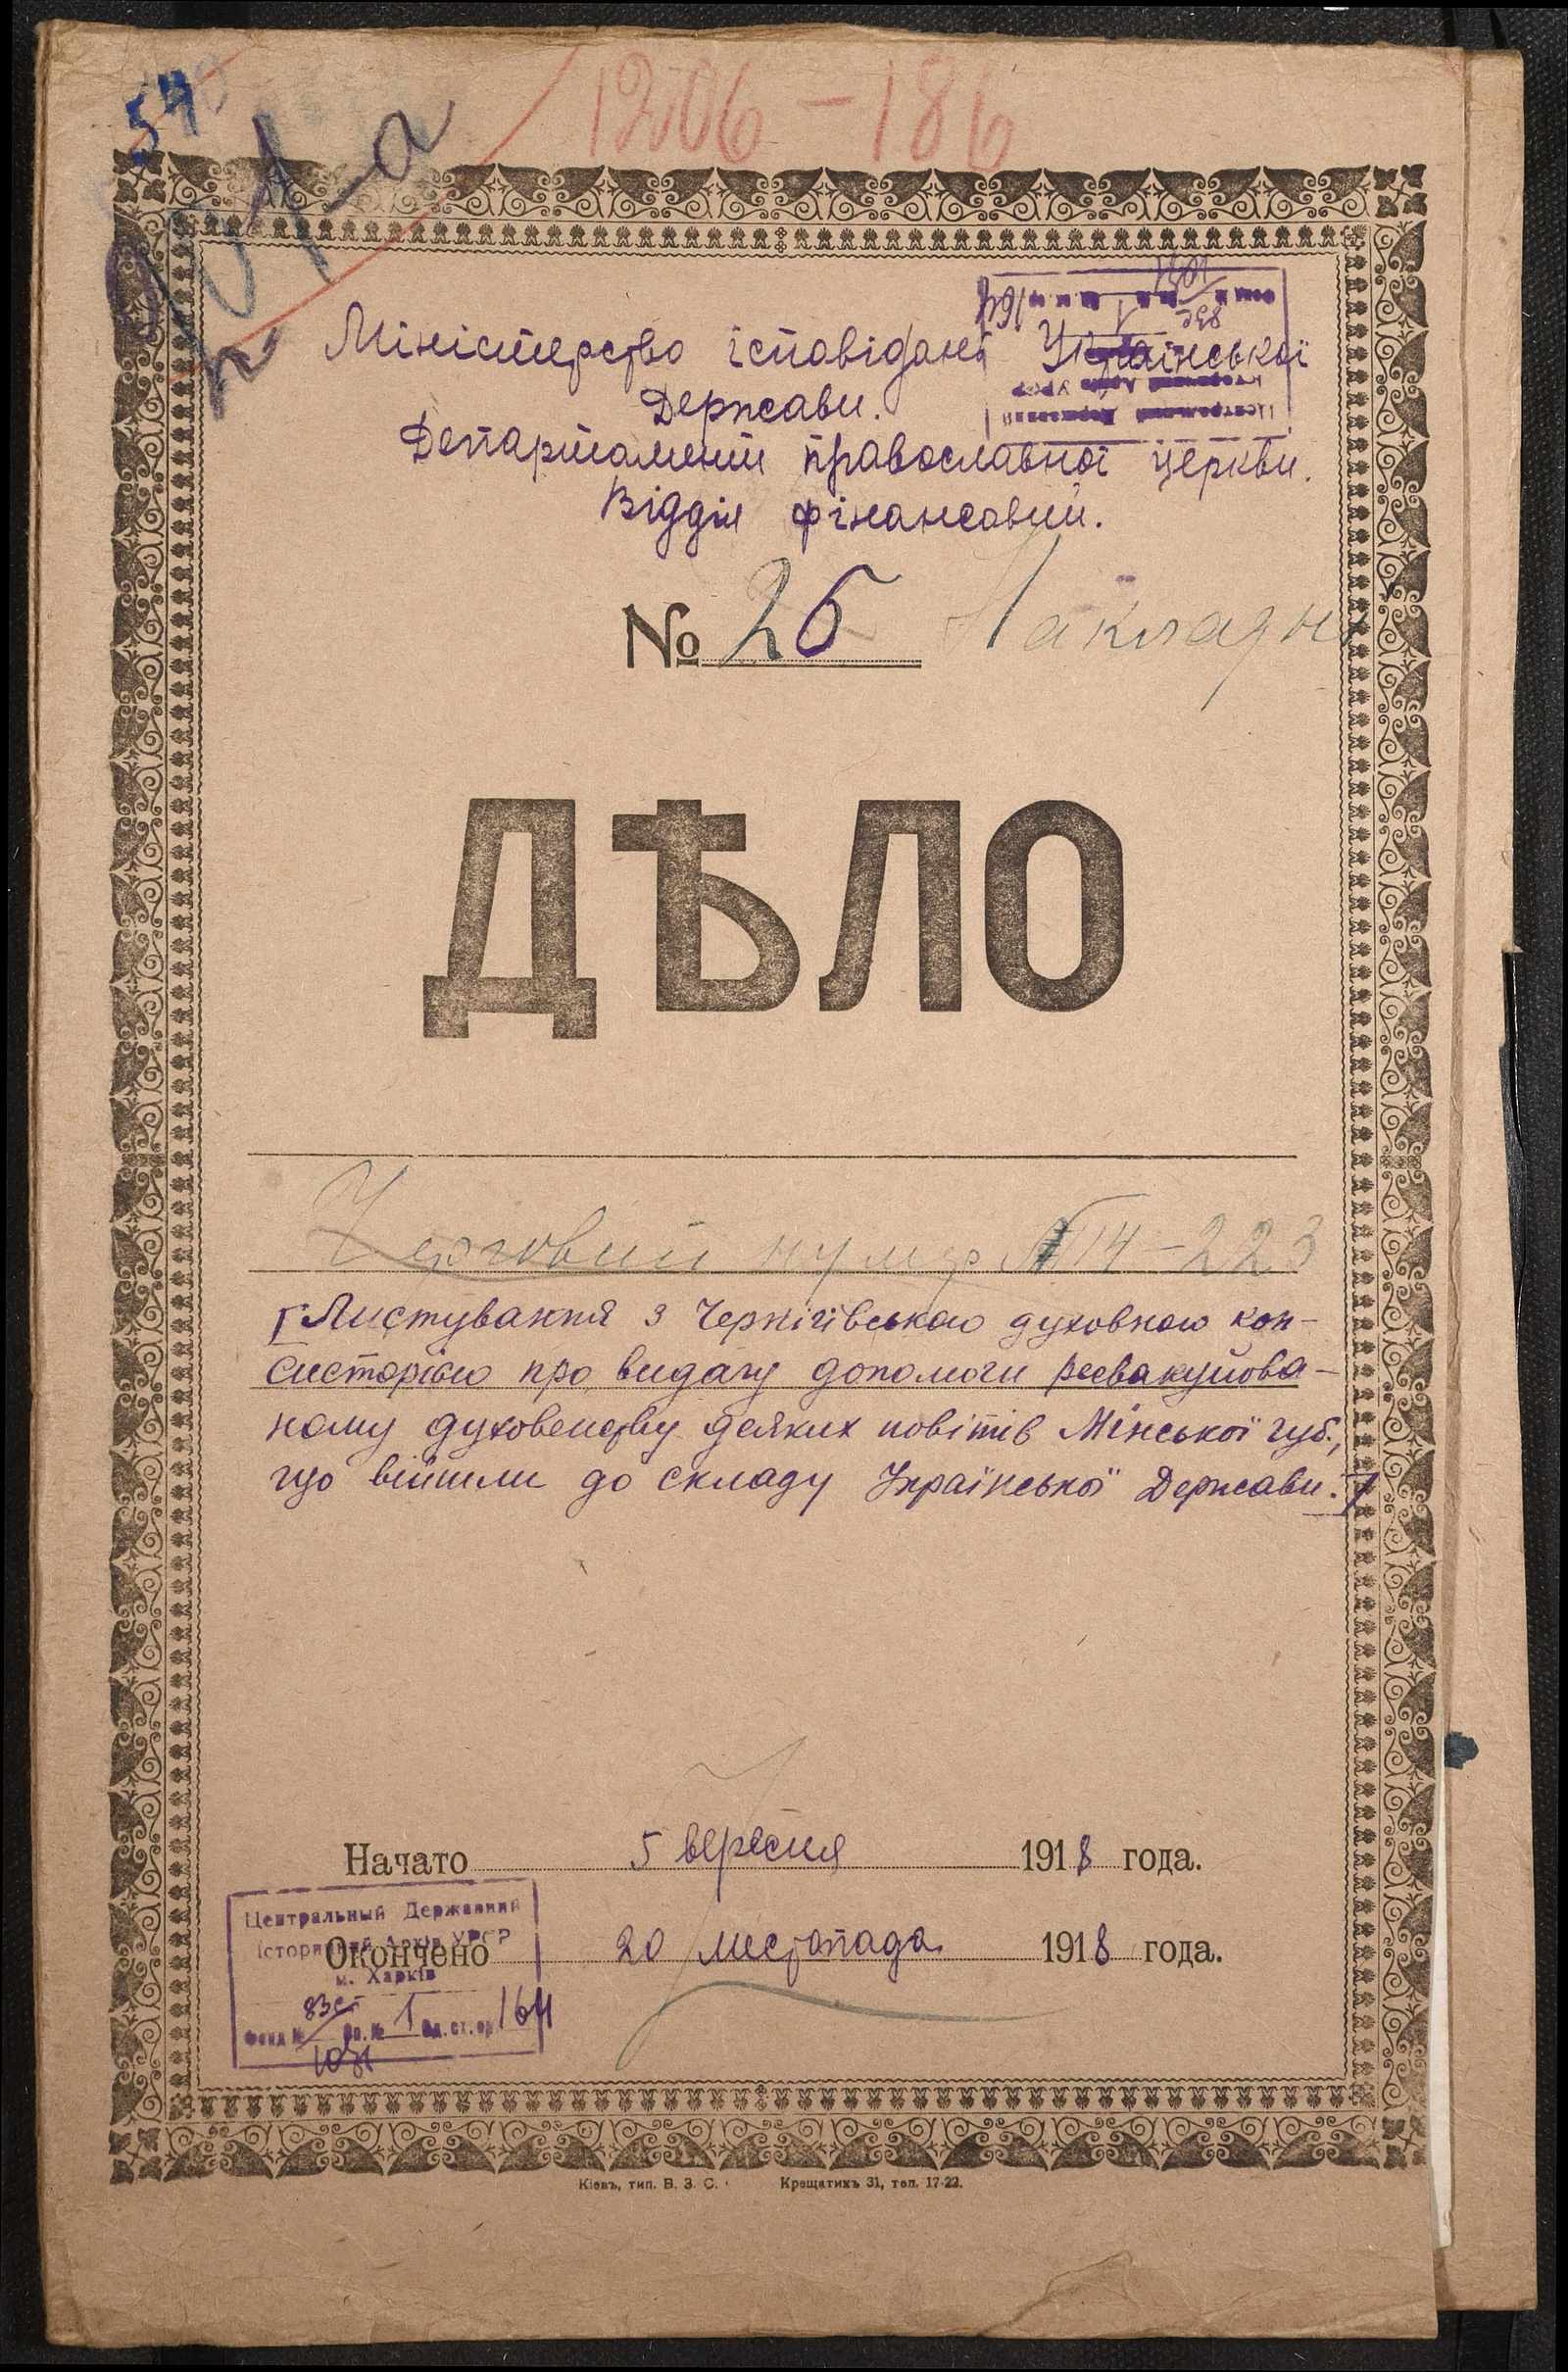 54
1206-186
Міністерство ісповідань Української
Держави.
Департамент православної церкви.
Відділ фінансовий.
№ 26 Накладн
ДѢЛО
Черговий нумер № 14-223
[Листування з Чернігівською духовною кон-
систорією про видачу допомоги реевакуйова-
ному духовенству деяких повітів Мінської губ.,
що війшли до складу Української Держави.]
Начато 5 вересня 1918 года.
Центральный Державний
Історичний Архів УРСР
Окончено 20 листопада 1918 года.
м. Харків
Фонд № Оп. № 1 Од. ст. ор. 164
1071
Кіевъ, тип. В. З. С. Крещатикъ 31, тел. 17-22.